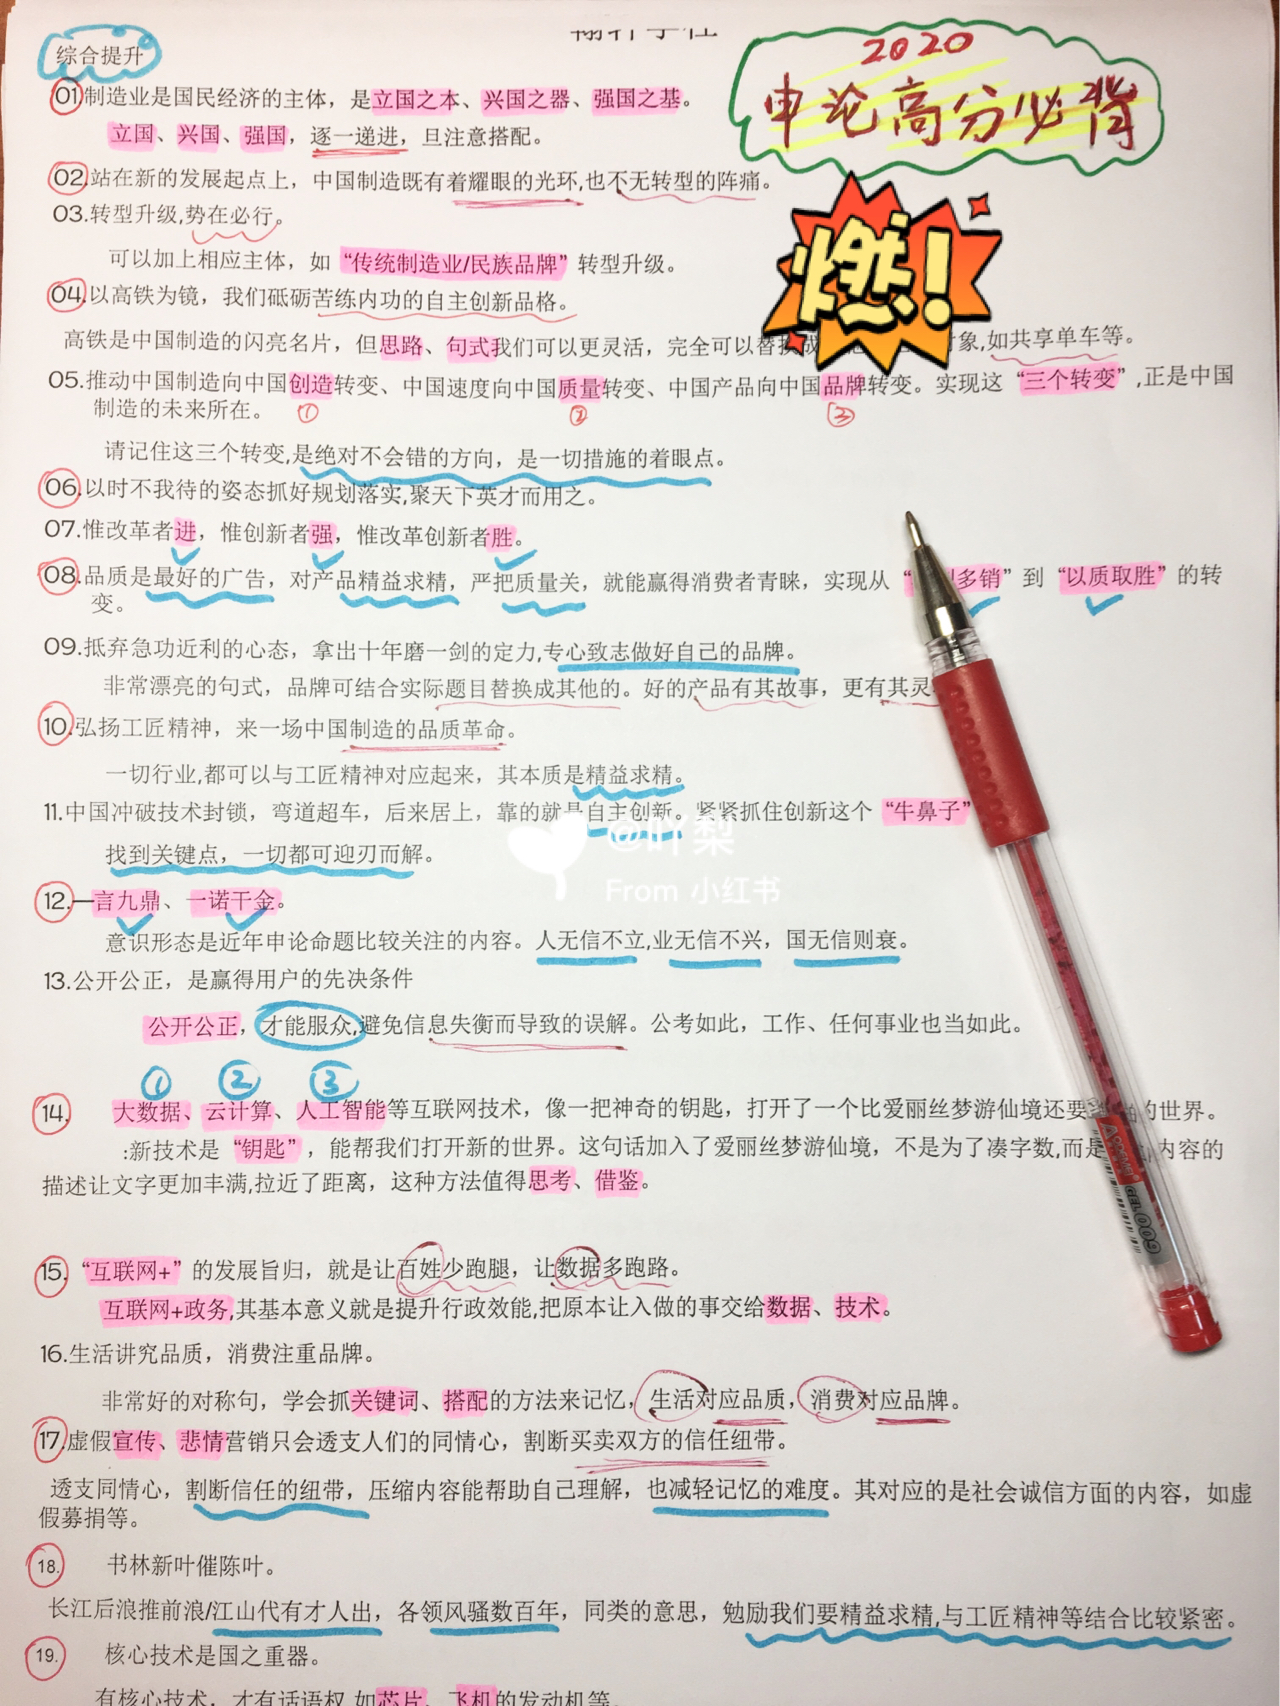 综合提升
2020
申论高分必背
燃!
01.制造业是国民经济的主体，是立国之本、兴国之器、强国之基。
立国、兴国、强国，逐一递进，旦注意搭配。
02.站在新的发展起点上，中国制造既有着耀眼的光环,也不无转型的阵痛。
03.转型升级,势在必行。
可以加上相应主体，如“传统制造业/民族品牌”转型升级。
04.以高铁为镜，我们砥砺苦练内功的自主创新品格。
高铁是中国制造的闪亮名片，但思路、句式我们可以更灵活，完全可以替换成 对象,如共享单车等。
05.推动中国制造向中国创造转变、中国速度向中国质量转变、中国产品向中国品牌转变。实现这“三个转变”,正是中国
制造的未来所在。
① ② ③
请记住这三个转变,是绝对不会错的方向，是一切措施的着眼点。
06.以时不我待的姿态抓好规划落实,聚天下英才而用之。
07.惟改革者进，惟创新者强，惟改革创新者胜。
08.品质是最好的广告，对产品精益求精，严把质量关，就能赢得消费者青睐，实现从“ 多销”到“以质取胜”的转
变。
09.抵弃急功近利的心态，拿出十年磨一剑的定力,专心致志做好自己的品牌。
非常漂亮的句式，品牌可结合实际题目替换成其他的。好的产品有其故事，更有其灵
10.弘扬工匠精神，来一场中国制造的品质革命。
一切行业,都可以与工匠精神对应起来，其本质是精益求精。
11.中国冲破技术封锁，弯道超车，后来居上，靠的就是自主创新。紧紧抓住创新这个“牛鼻子”
@吖梨
找到关键点，一切都可迎刃而解。
From 小红书
12.一言九鼎、一诺千金。
意识形态是近年申论命题比较关注的内容。人无信不立,业无信不兴，国无信则衰。
13.公开公正，是赢得用户的先决条件
公开公正，才能服众,避免信息失衡而导致的误解。公考如此，工作、任何事业也当如此。
① ② ③
14. 大数据、云计算、人工智能等互联网技术，像一把神奇的钥匙，打开了一个比爱丽丝梦游仙境还要 的世界。
:新技术是“钥匙”，能帮我们打开新的世界。这句话加入了爱丽丝梦游仙境，不是为了凑字数,而是 内容的
描述让文字更加丰满,拉近了距离，这种方法值得思考、借鉴。
CORNER GEL 009
15.“互联网+”的发展旨归，就是让百姓少跑腿，让数据多跑路。
互联网+政务,其基本意义就是提升行政效能,把原本让入做的事交给数据、技术。
16.生活讲究品质，消费注重品牌。
非常好的对称句，学会抓关键词、搭配的方法来记忆，生活对应品质，消费对应品牌。
17.虚假宣传、悲情营销只会透支人们的同情心，割断买卖双方的信任纽带。
透支同情心，割断信任的纽带，压缩内容能帮助自己理解，也减轻记忆的难度。其对应的是社会诚信方面的内容，如虚
假募捐等。
18. 书林新叶催陈叶。
长江后浪推前浪/江山代有才人出，各领风骚数百年，同类的意思，勉励我们要精益求精,与工匠精神等结合比较紧密。
19. 核心技术是国之重器。
有核心技术，才有话语权,如芯片、飞机的发动机等。